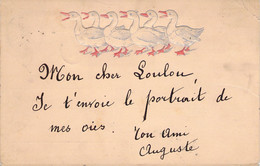 Mon cher Loulou,
Je t'envoie le portrait de
mes oies. Ton Ami
Auguste